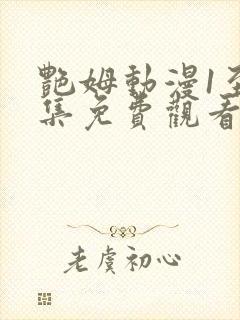 艷姆動漫1至
集免費觀看
老虞初心